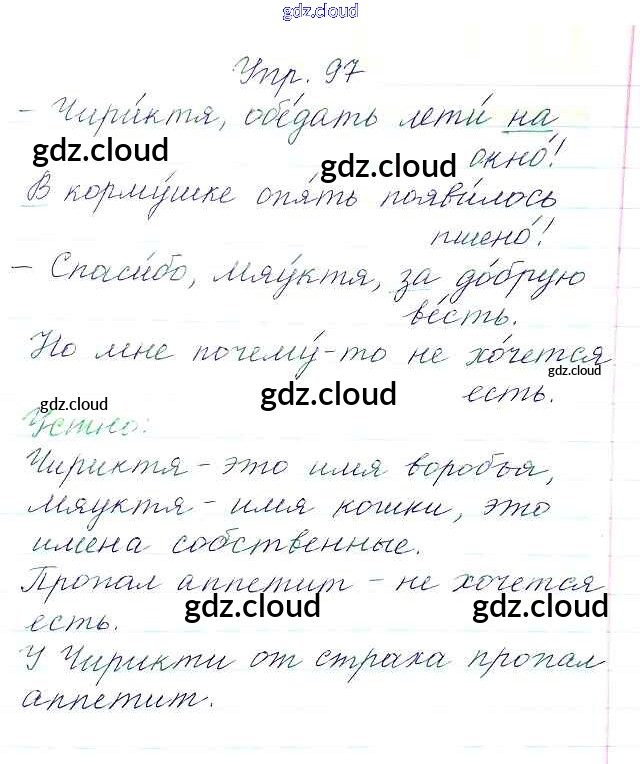 gdz.cloud
Упр. 97
- Чири́ктя, обе́дать лети́ на
gdz.cloud
gdz.cloud
окно́!
В корму́шке опя́ть появи́лось
пшено́!
- Спаси́бо, Мяу́ктя, за до́брую
ве́сть.
Но мне почему́-то не хо́чется
gdz.cloud
gdz.cloud
есть.
gdz.cloud
Устно:
Чириктя - это имя воробья,
Мяуктя - имя кошки, это
имена собственные.
Пропал аппетит - не хочется
gdz.cloud
gdz.cloud
есть.
У Чирикти от страха пропал
аппетит.